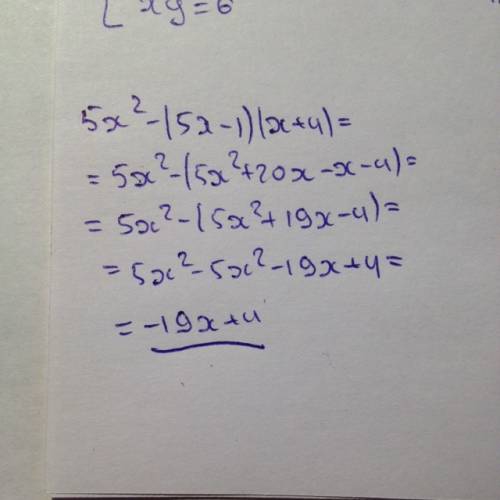 [ xy=6
5x²-(5x-1)(x+4)=
=5x²-(5x²+20x-x-4)=
=5x²-(5x²+19x-4)=
=5x²-5x²-19x+4=
=-19x+4